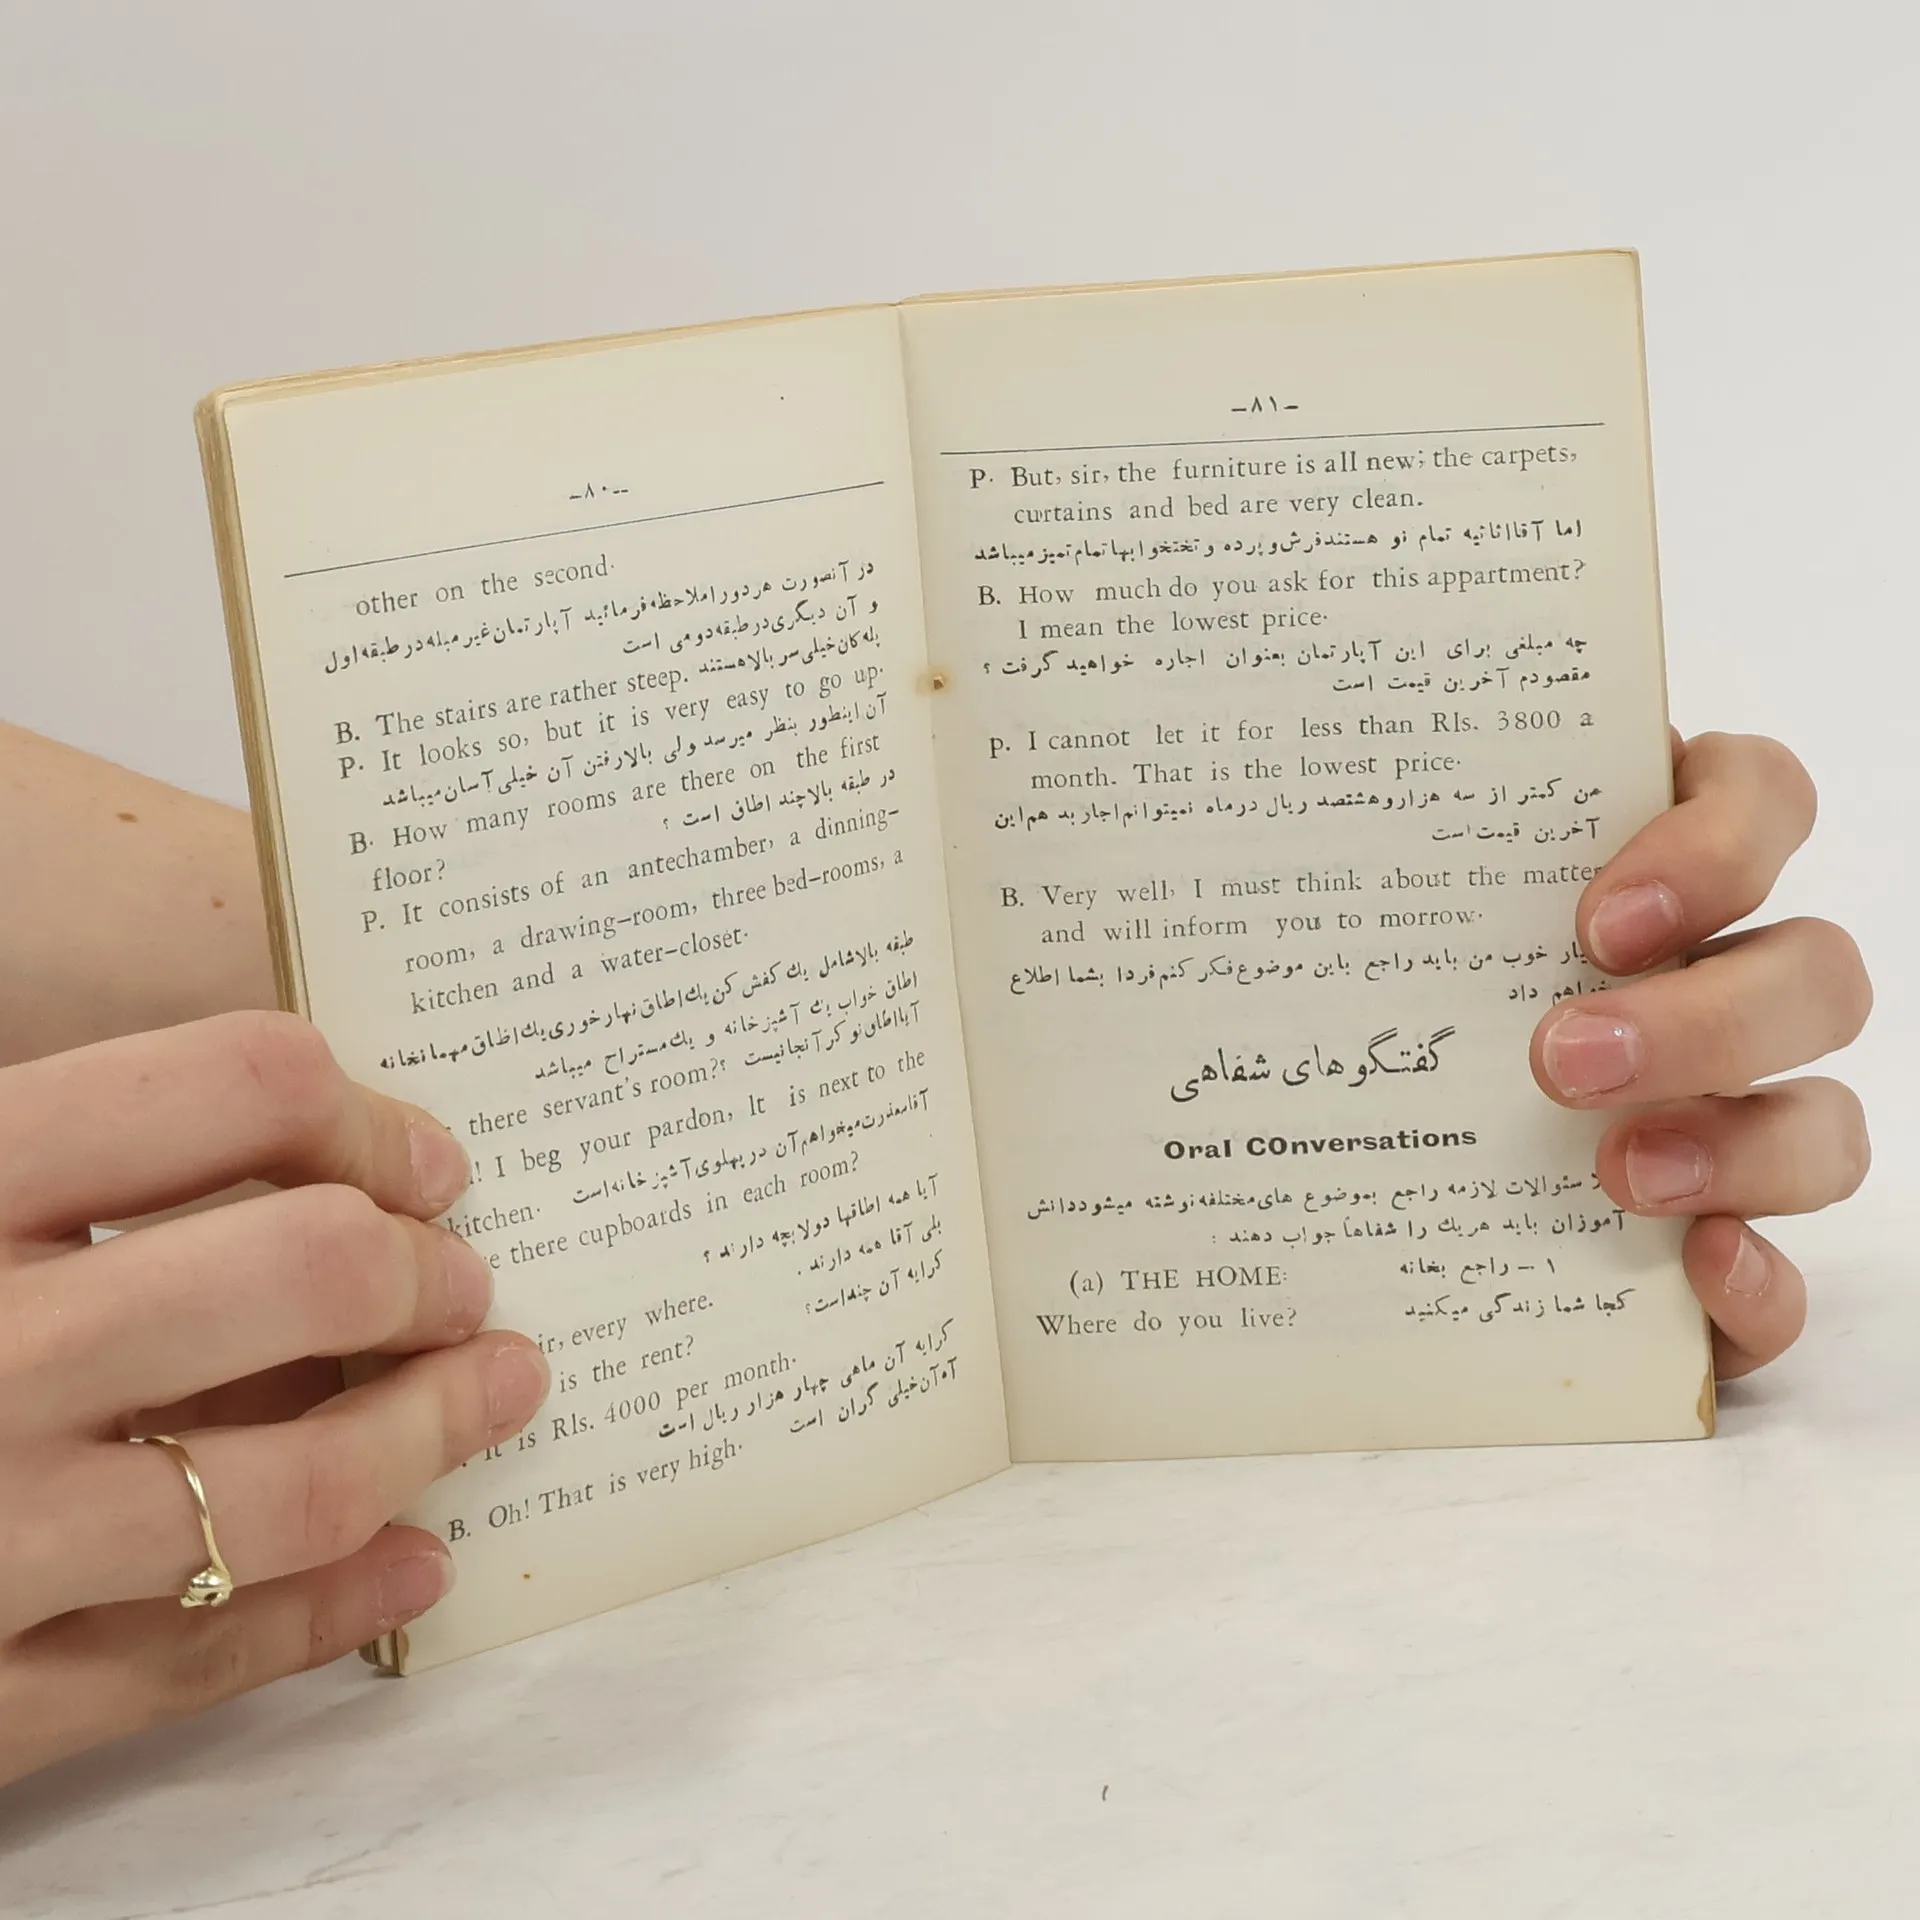 -۸۰--
other on the second.
در آنصورت هر دو را ملاحظه فرمائید آپارتمان غیر مبله در طبقه اول
و آن دیگری در طبقه دومی است
B. The stairs are rather steep. پله کان خیلی سر بالا هستند
P. It looks so, but it is very easy to go up.
آن اینطور بنظر میرسد ولی بالا رفتن آن خیلی آسان میباشد
B. How many rooms are there on the first
floor?
در طبقه بالا چند اطاق است ؟
P. It consists of an antechamber, a dinning-
room, a drawing-room, three bed-rooms, a
kitchen and a water-closet.
طبقه بالا شامل یك کفش کن یك اطاق نهار خوری یك اطاق مهما نخانه
اطاق خواب یك آشپز خانه و یك مستراح میباشد
there servant's room? آیا اطاق نو کر آنجا نیست ؟
! I beg your pardon, It is next to the
kitchen. آقا معذرت میخواهم آن در پهلوی آشپز خانه است
there cupboards in each room?
آیا همه اطاقها دولابچه دارند ؟
every where. بلی آقا همه دارند .
is the rent? کرایه آن چند است ؟
It is Rls. 4000 per month.
کرایه آن ماهی چهار هزار ریال است
B. Oh! That is very high. آه آن خیلی گران است
-۸۱-
P. But, sir, the furniture is all new; the carpets,
curtains and bed are very clean.
اما آقا اثاثیه تمام نو هستند فرش و پرده و تختخوابها تمام تمیز میباشد
B. How much do you ask for this appartment?
I mean the lowest price.
چه مبلغی برای این آپارتمان بعنوان اجاره خواهید گرفت ؟
مقصودم آخرین قیمت است
p. I cannot let it for less than Rls. 3800 a
month. That is the lowest price.
من کمتر از سه هزار و هشتصد ریال در ماه نمیتوانم اجار بدهم این
آخرین قیمت است
B. Very well, I must think about the matter
and will inform you to morrow.
خوب من باید راجع باین موضوع فکر کنم فردا بشما اطلاع
خواهم داد
گفتگو های شفاهی
Oral COnversations
سئوالات لازمه راجع بموضوع های مختلفه نوشته میشود دانش
آموزان باید هر یك را شفاهاً جواب دهند :
(a) THE HOME: ۱ - راجع بخانه
Where do you live? کجا شما زندگی میکنید